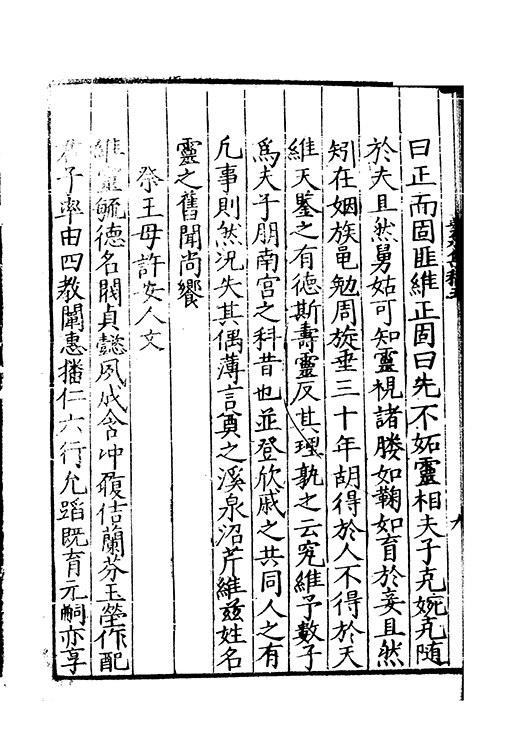 曰正而固匪維正固曰先不妬靈相夫子克婉克随
於夫且然舅姑可知靈視諸媵如鞠如育於妾且然
矧在姻族黽勉周旋垂三十年胡得於人不得於天
維天鑒之有德斯壽靈反其理孰之云究維予數子
爲夫子朋南宫之科昔也並登欣戚之共同人之有
凢事則然况失其偶薄言奠之溪泉沼芹維兹姓名
靈之舊聞尚饗
祭王母許安人文
維靈毓德名閥貞懿夙成含冲履佶蘭芬玉瑩作配
君子率由四教闡惠播仁六行允蹈既育元嗣亦享